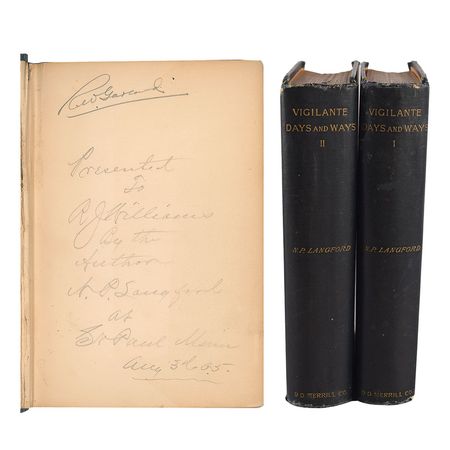 Presented
To
R. J. Williams
by the
Author
N. P. Langford
at
St Paul Minn
Aug 3d 95.
VIGILANTE
DAYS AND WAYS
II
N.P. LANGFORD
D.D. MERRILL CO.
VIGILANTE
DAYS AND WAYS
I
N.P. LANGFORD
D.D. MERRILL CO.